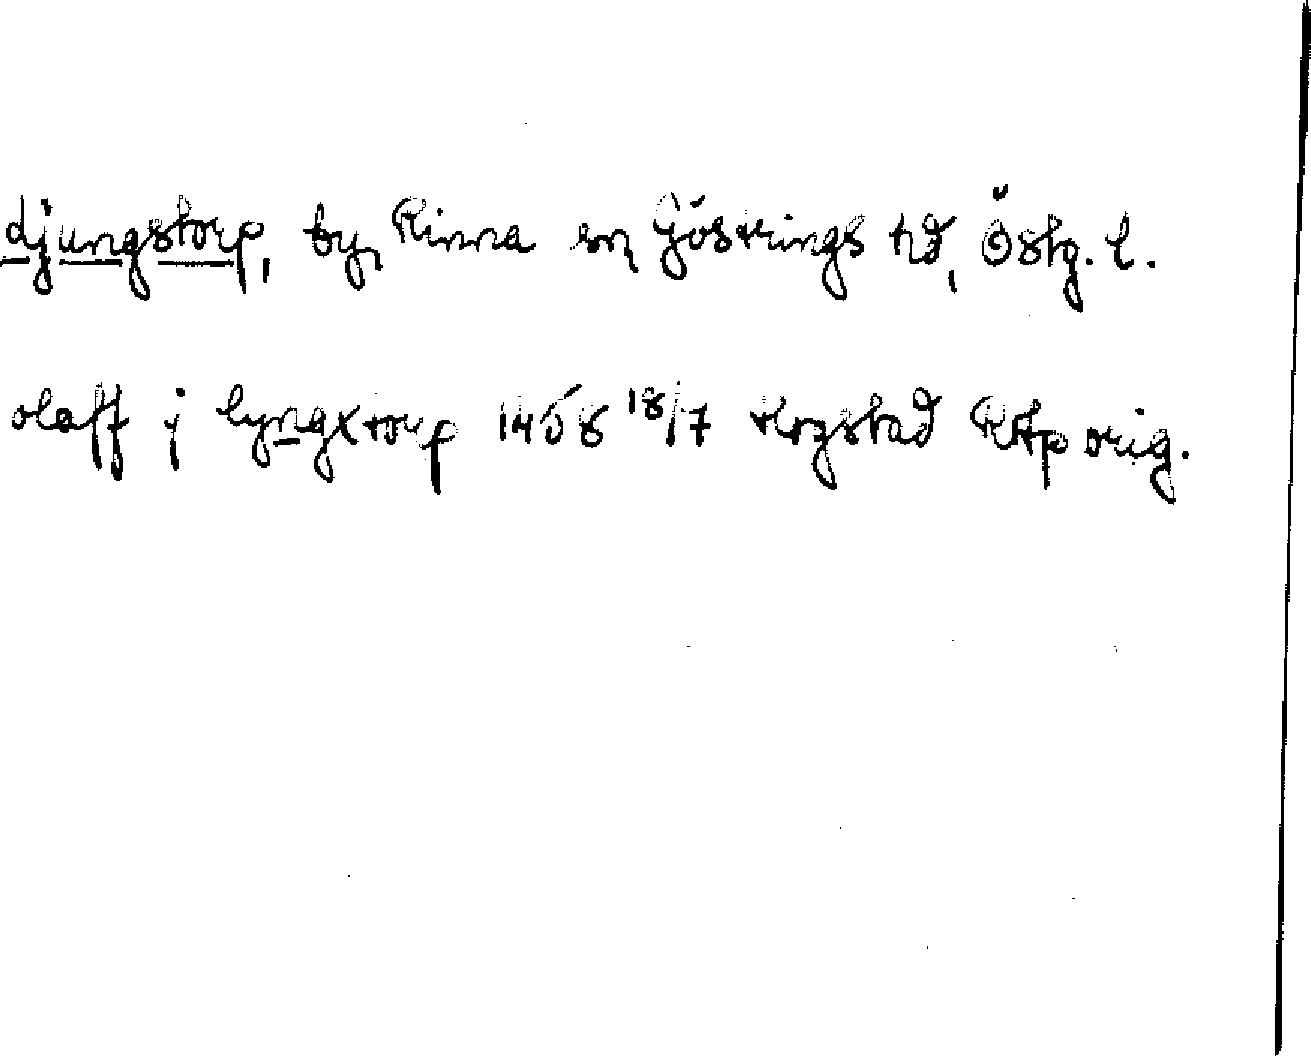 djungstorp, by, Rinna sn Göstrings hd, Östg. l.
olaff j lyngxtorp 1458 18/7 Hogstad RAp orig.